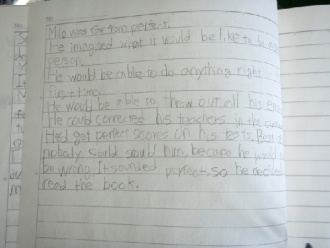 Milo was far from perfect.
He imagined what it would be like to be
person.
He would be able to do anything right
first time.
He would be able to throw out all his
He could corrected his teachers in the
Had got perfect scores on his tests. Best
nobody could him, because he would
be wrong. It sounded perfect. So he
read the book.